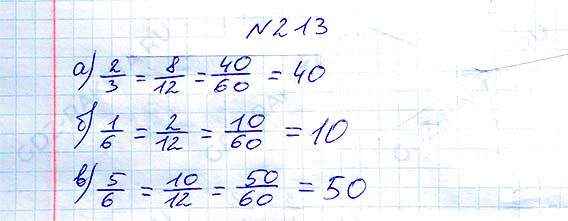 №213
а) 2/3 = 8/12 = 40/60 = 40
б) 1/6 = 2/12 = 10/60 = 10
в) 5/6 = 10/12 = 50/60 = 50